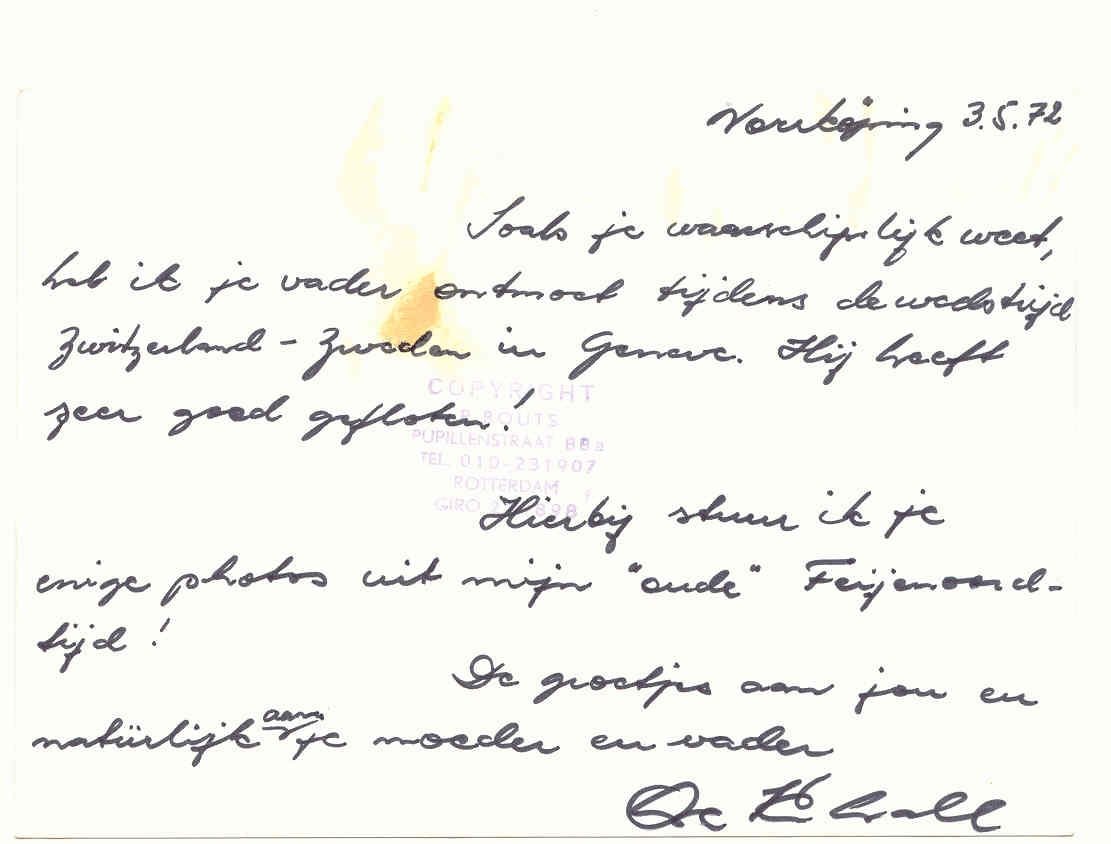 Norrköping 3.5.72
Soals je waarschijnlijk weet,
heb ik je vader ontmoet tijdens de wedstrijd
Zwitzerland - Zweden in Geneve. Hij heeft
zeer goed gefloten!
COPYRIGHT
BOUTS
PUPILLENSTRAAT 88a
TEL. 010-231907
ROTTERDAM
GIRO
Hierbij stuur ik je
enige photos uit mijn "oude" Feijenoord-
tijd!
De groetjes aan jou en
natürlijk aan je moeder en vader
Ove Kindvall